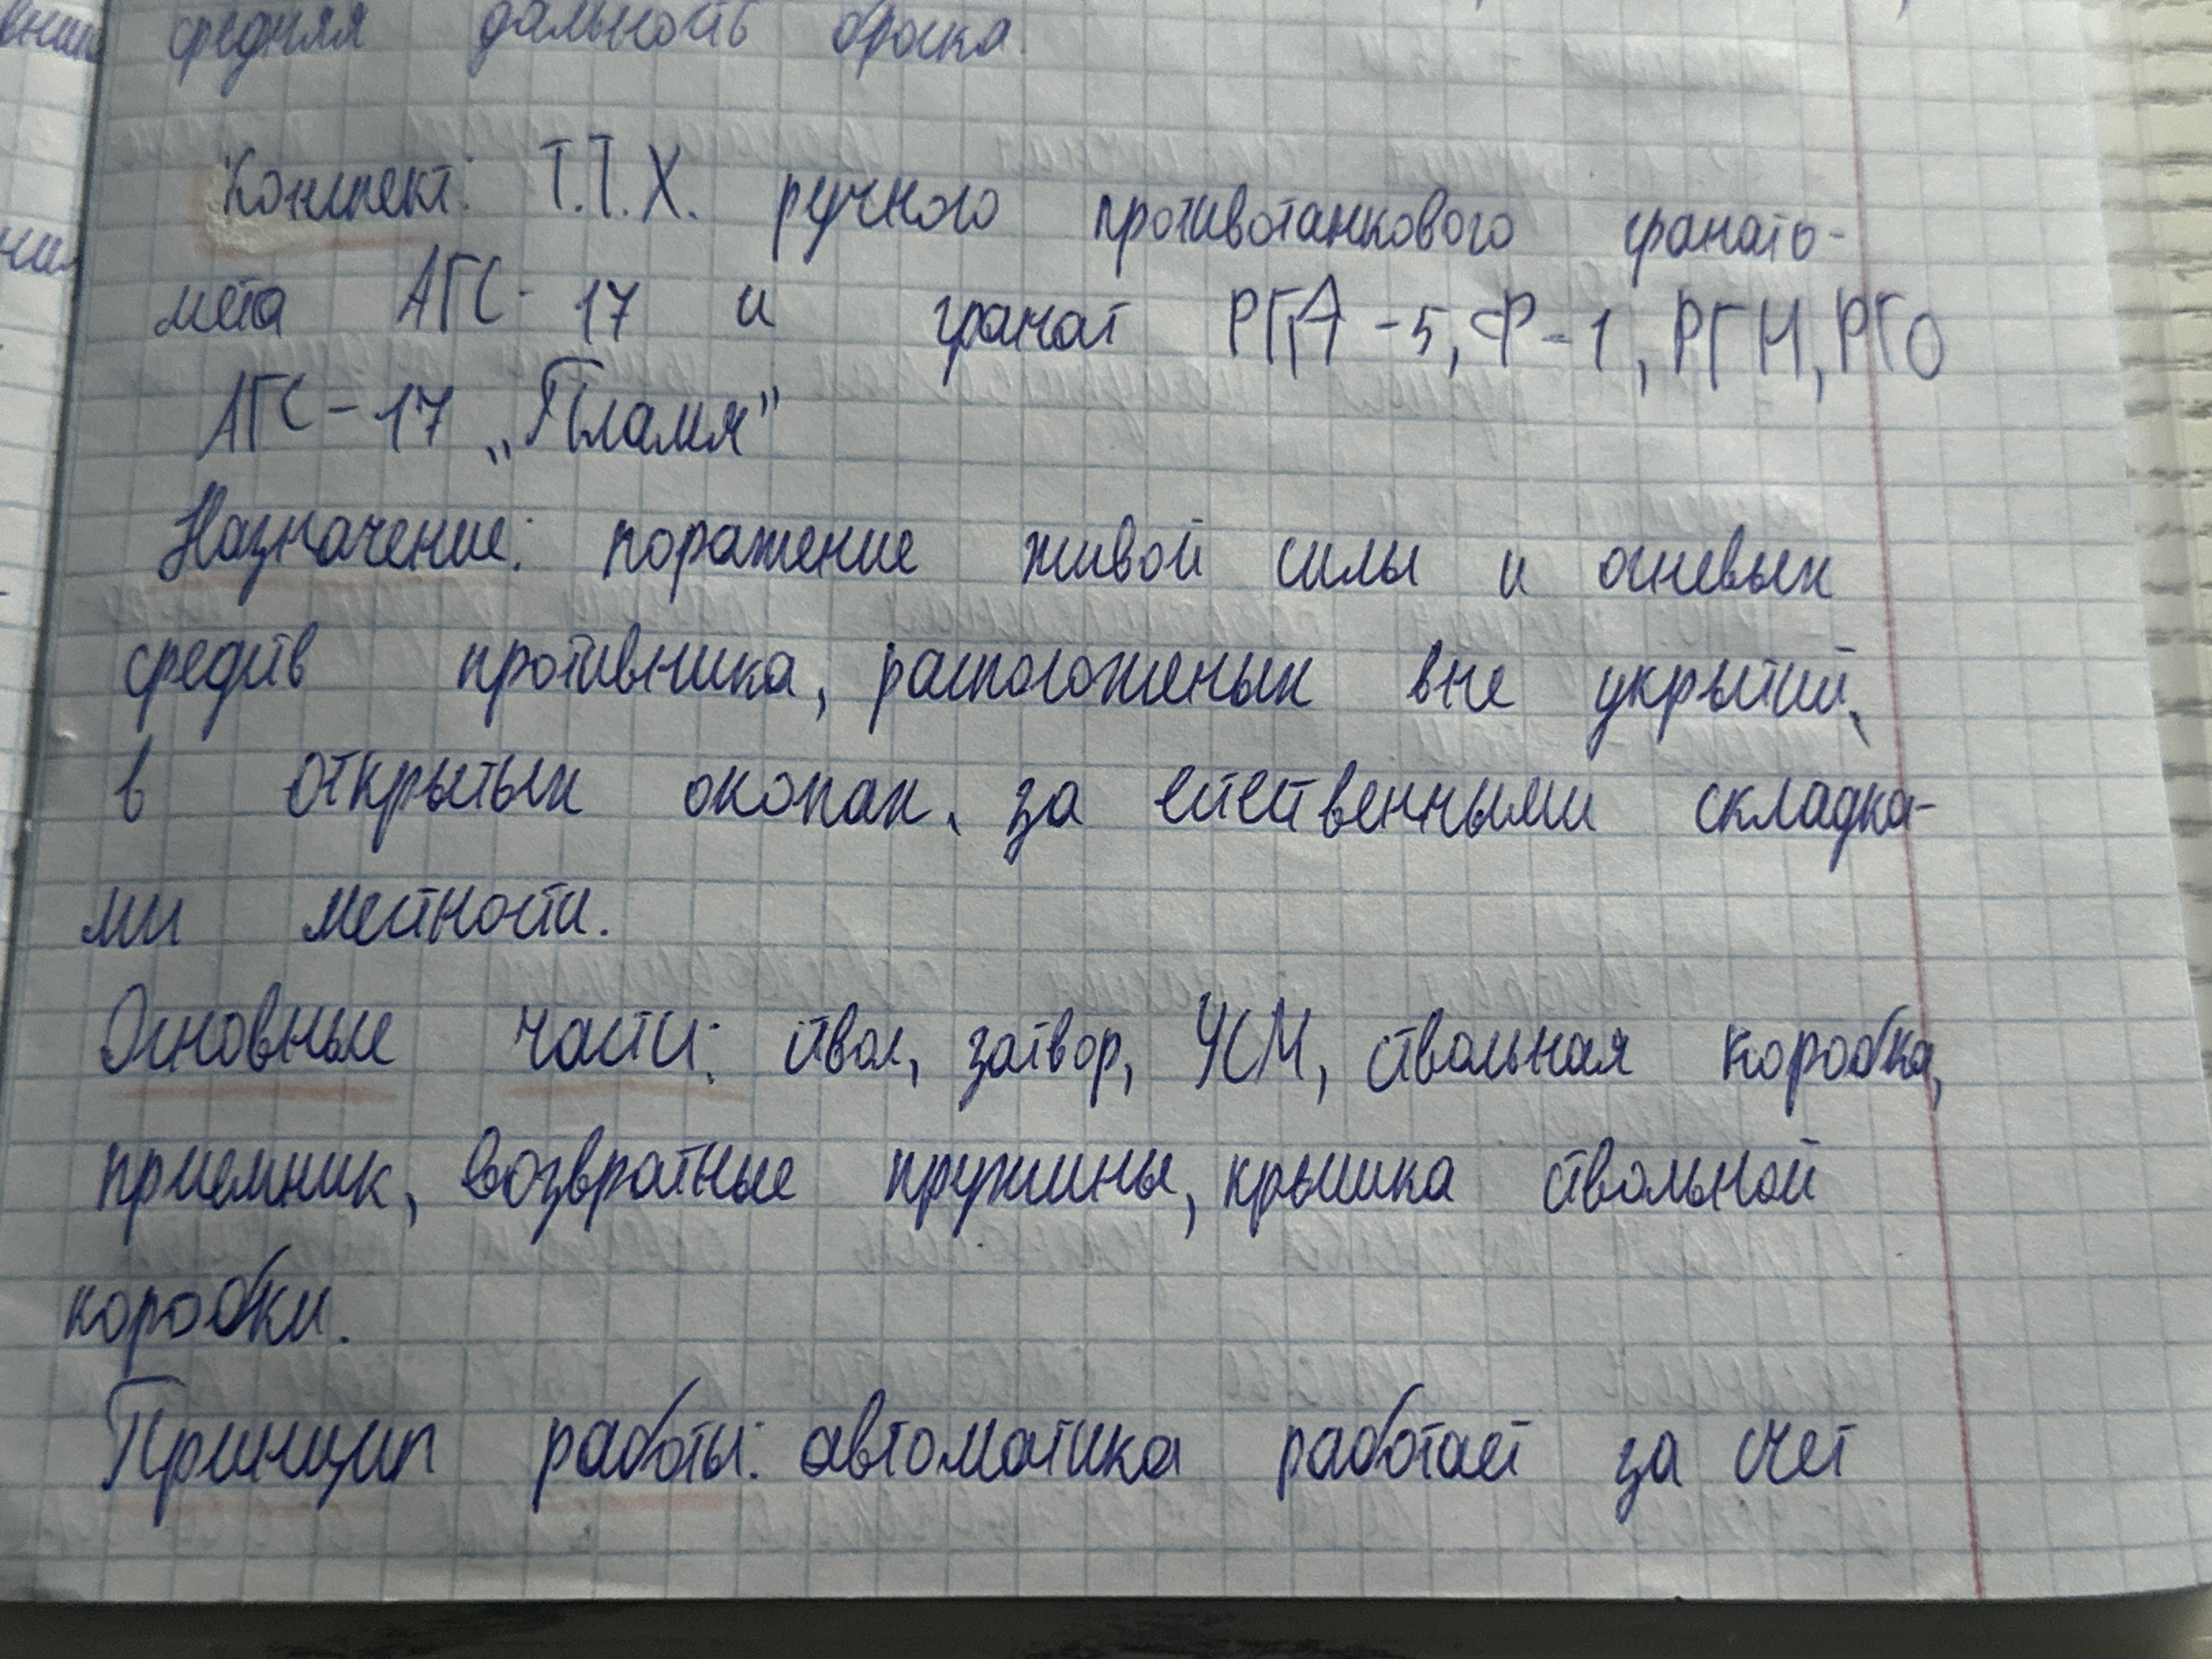 средняя дальность броска.
Конспект: Т.Т.Х. ручного противотанкового гранато-
мета АГС-17 и гранат РГД-5, Ф-1, РГН, РГО
АГС-17 „Пламя"
Назначение: поражение живой силы и огневых
средств противника, расположеных вне укрытий,
в открытых окопах, за естественными складка-
ми местности.
Основные части: ствол, затвор, УСМ, ствольная коробка,
приемник, возвратные пружины, крышка ствольной
коробки.
Принцип работы: автоматика работает за счет